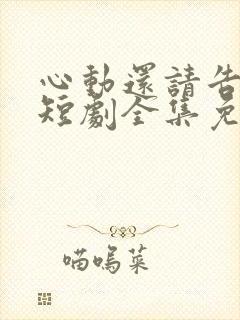 心動還請告
短劇全集免
喵嗚菜